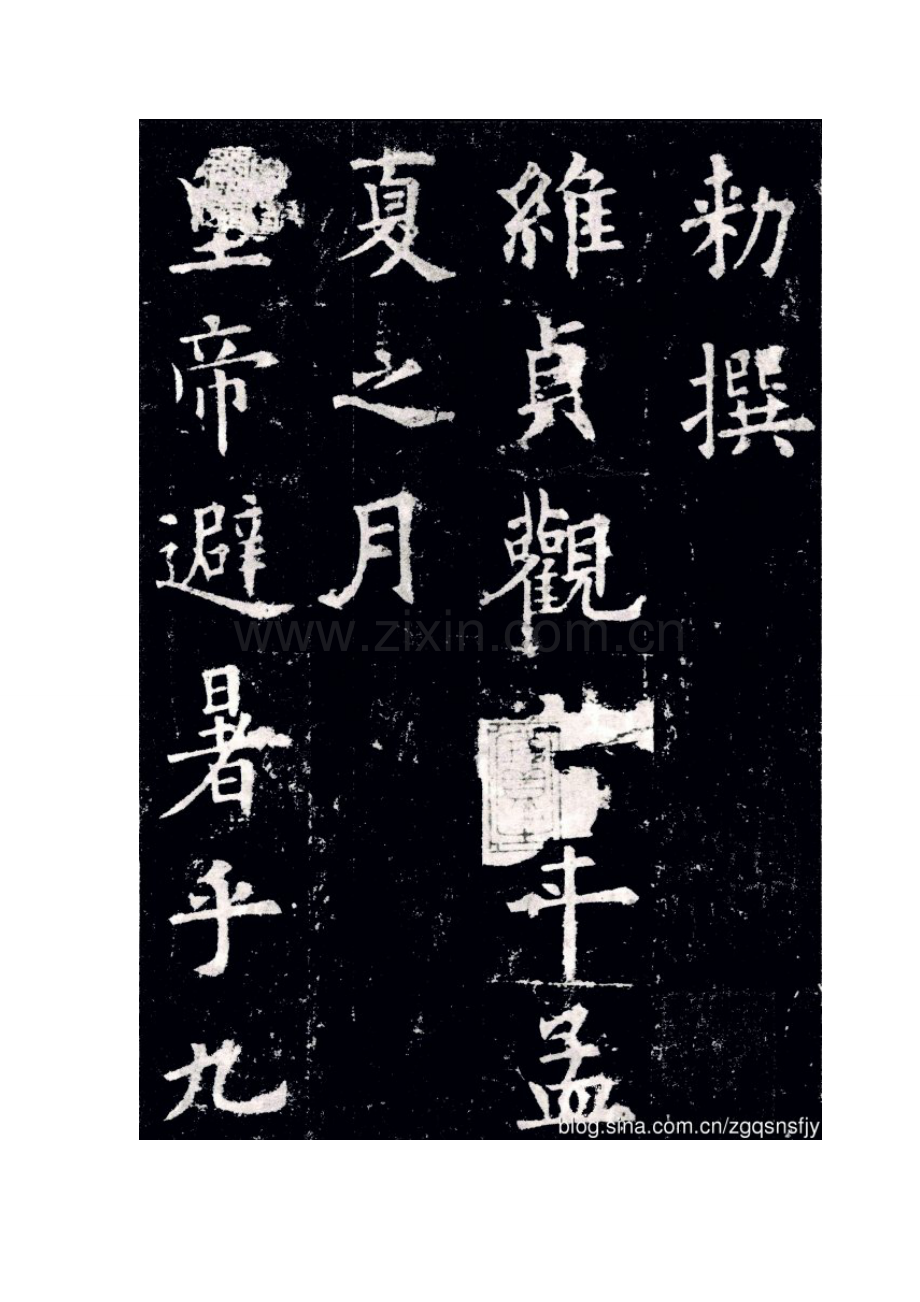 勑撰
維貞觀年孟
夏之月
皇帝避暑乎九
www.zixin.com.cn
blog.sina.com.cn/zgqsnsfjy